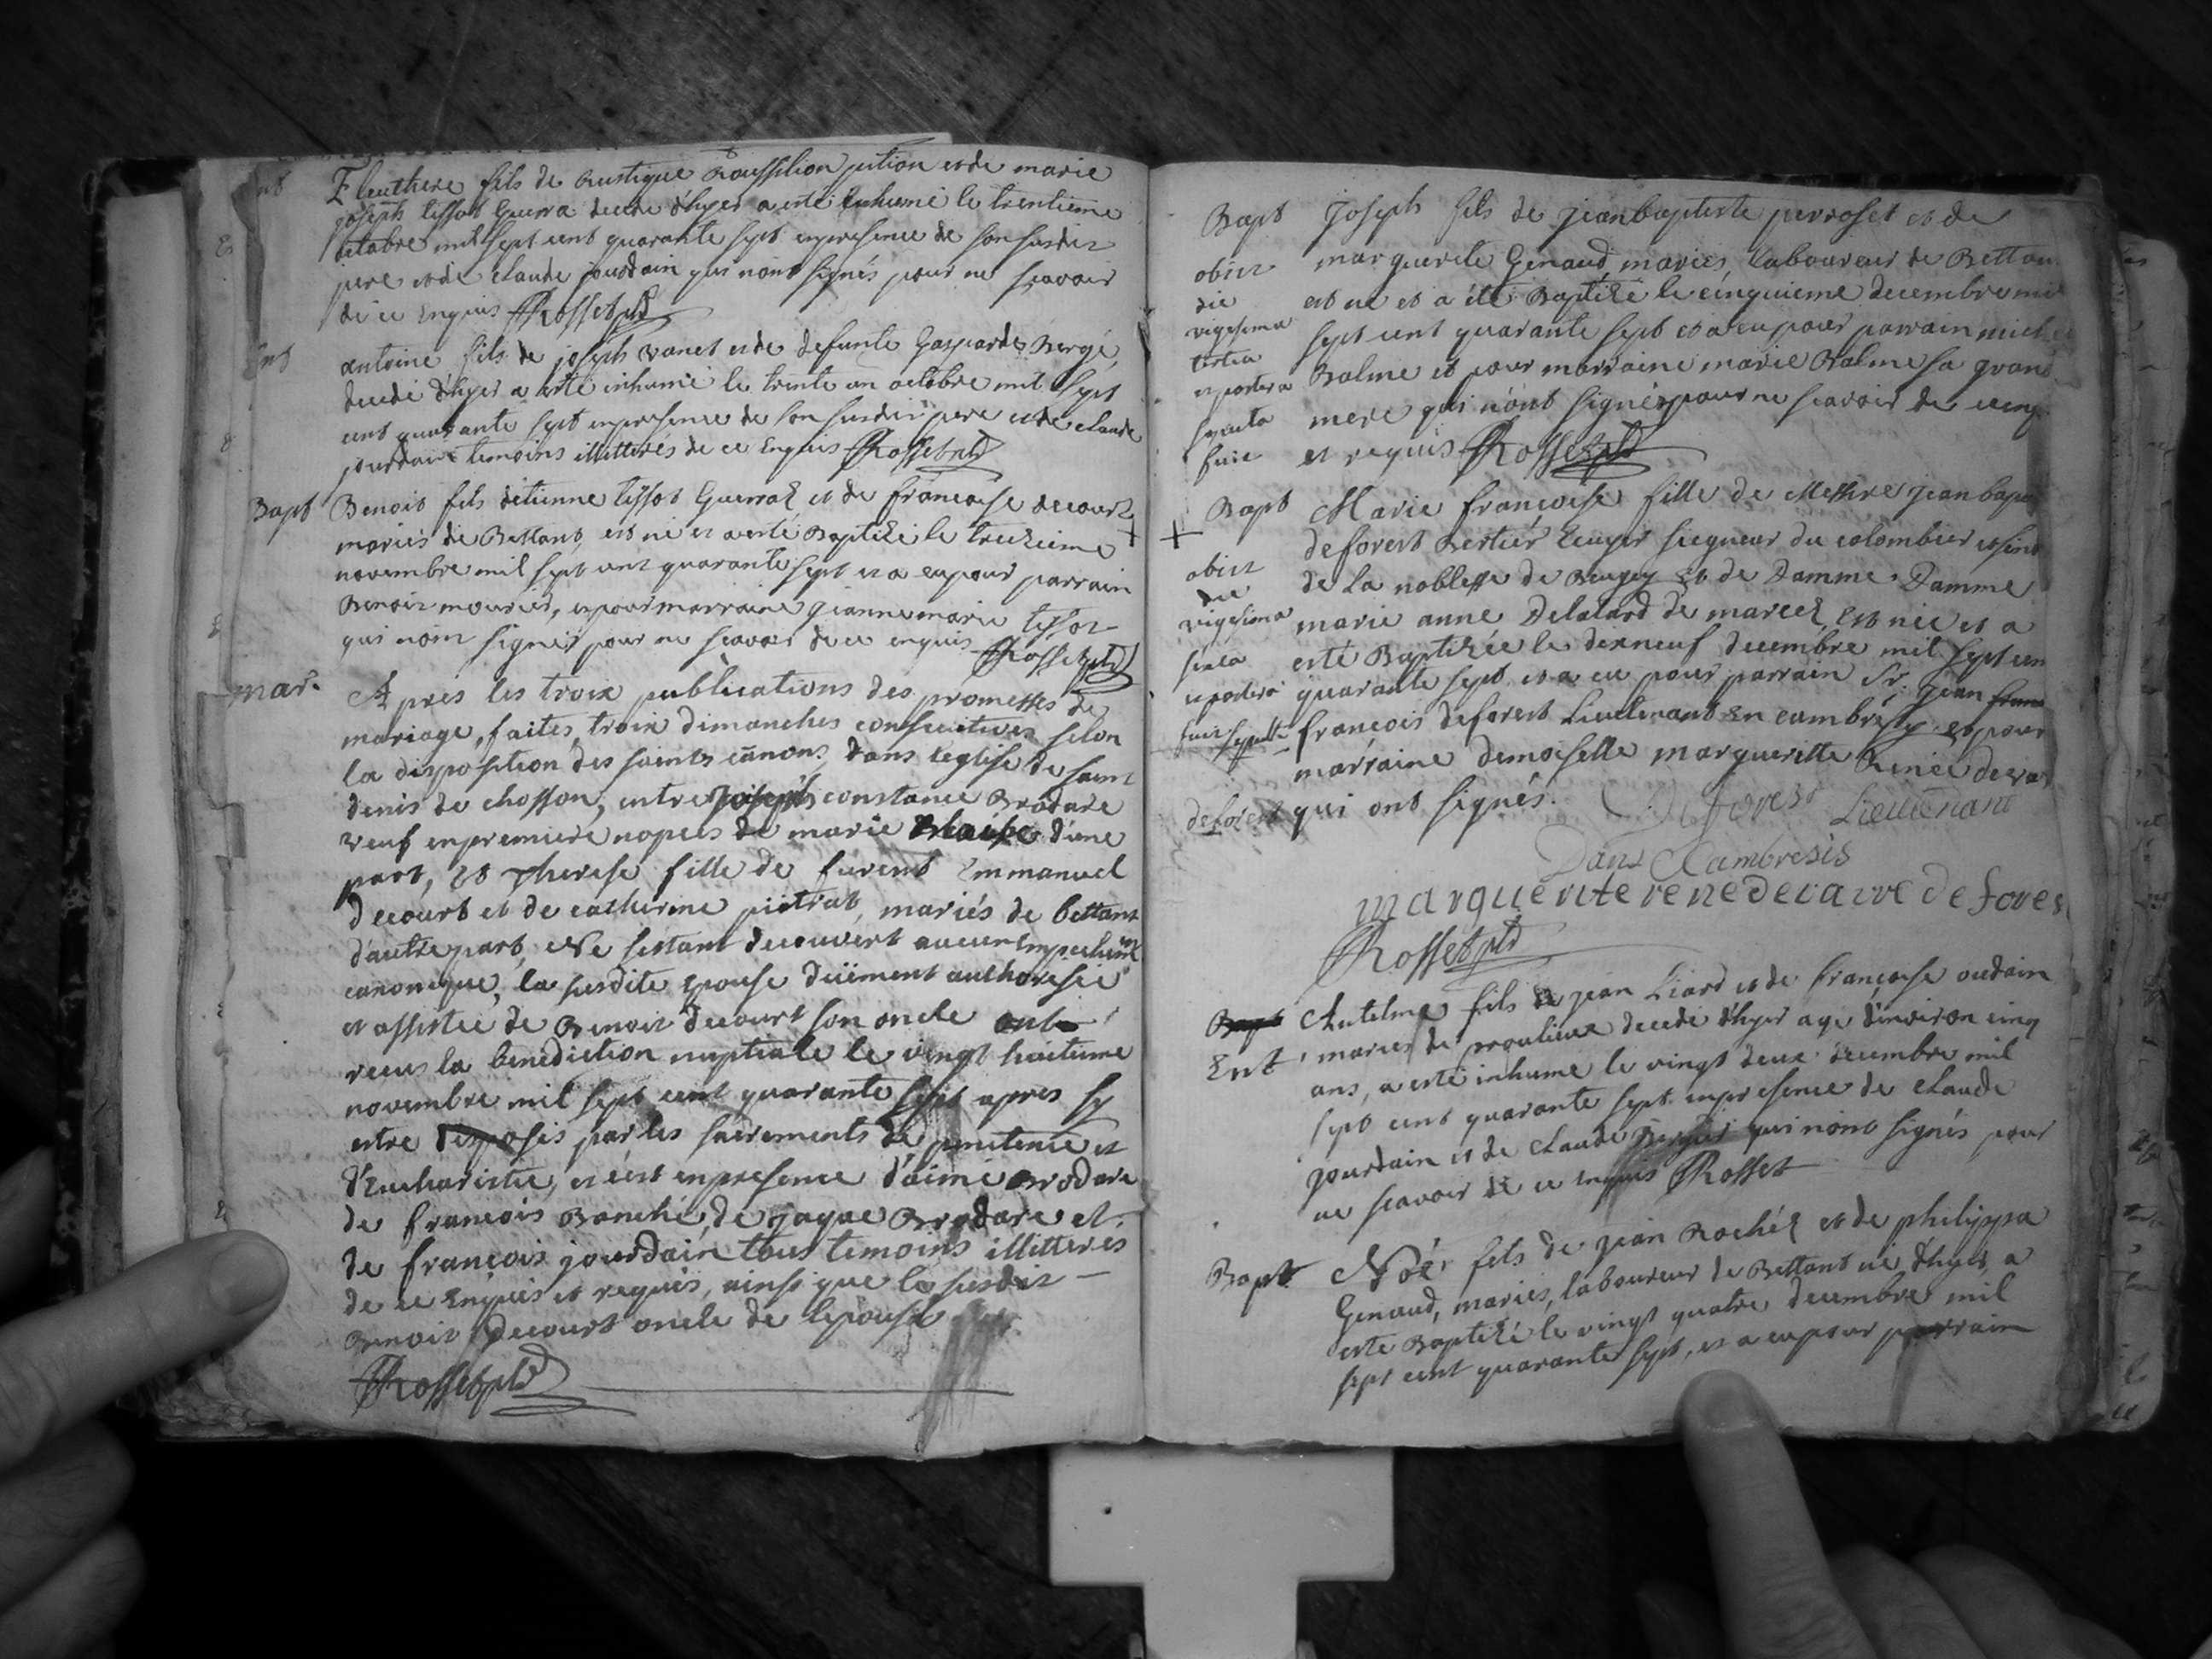 Eleuthere fils de Rustique Roussilion pution et de marie
joseph tissot Guerra decede d'hyer a esté inhumé le trentieme
octobre mil sept cent quarante sept en presence de son susdit
pere et de claude jourdain qui n'ont signés pour ne scavoir
de ce Enquis Rosset
Ent
antoine fils de joseph vanet et de defunte Gasparde Bergé
decedé d'hyer a esté inhumé le trente un octobre mil sept
cent quarante sept en presence de son susdit pere et de claude
jourdain temoins illitterés de ce Enquis Rosset
Bapt
Benoit fils d'etienne tissot Guerraz et de francoise decourt
mariés de Bettant, est né et a esté Baptizé le treizieme
novembre mil sept cent quarante sept et a eu pour parrain
Benoit mourier, et pour marraine jeanne marie tissot
qui n'ont signés pour ne scavoir de ce enquis Rosset
mar.
Apres les troix publications des promesses de
mariage, faites, troix dimanches consecutives selon
la disposition des saints canons dans leglise de saint
denis de chosson, entre joseph constance Brodare
veuf en premiere nopces de marie Blaise d'une
part, Et Therese fille de furent Emmanuel
decourt et de catherine piotrat, mariés de bettant
d'autre part, Ne sestant decouvert aucun Empechemt
canonique, la susdite epouse düement authorisée
et assistée de Benoit decourt son oncle ont
recus la benediction nuptiale le vingt huitieme
novembre mil sept cent quarante sept apres sy
estre disposés par les sacrements de penitence et
d'Eucharistie, et c'est en presence d'aimé Brodare
de françois Bonché, de jaque Brodare et
de françois jourdain tous temoins illitterés
de ce Enquis et requis, ainsi que le susdit
Benoit decourt oncle de lepouse
Rosset
Bapt
obiit
die
vigesima
tertia
et postera
sepulta
fuit
Joseph fils de jean baptiste perroset et de
marguerite Genaud, mariés, laboureur de Bettan
est né et a été Baptizé le cinquieme decembre mil
sept cent quarante sept et a eu pour parrain michel
Balme et pour marraine marie Balme sa grand
mere qui n'ont signés pour ne scavoir de ce enq
et requis Rosset
Bapt
obiit
die
vigesima
sexta
et postera
fuit sepulta
deforest
Marie françoise fille de Messire jean bapt
deforest Bertier Ecuyer siegneur du colombier
de la noblesse de Beugey Et de Damme Damme
marie anne Delatard de marcel, Est née et a
esté Baptizée le dixneuf decembre mil sept cen
quarante sept et a eu pour parrain Sr. jean
françois deforest Lieutenant en cambresy et pour
marraine demoiselle marguerite Renée
qui ont signés.
Deforest Lieutenant
Dans Cambresis
marguerite rene deforest
Rosset
Bapt
Ent
Antelme fils de jean Liard et de françoise oudain
mariés de proulieux decedé d'hyer agé d'environ cinq
ans, a esté inhumé le vingt deux decembre mil
sept cent quarante sept en presence de claude
jourdain et de claude Berger qui n'ont signés pour
ne scavoir de ce enquis Rosset
Bapt
Noé fils de jean Rochéz et de philippa
Genaud, mariés, laboureur de Bettant né d'hyer, a
esté Baptizé le vingt quatre decembre mil
sept cent quarante sept, et a eu pour parrain